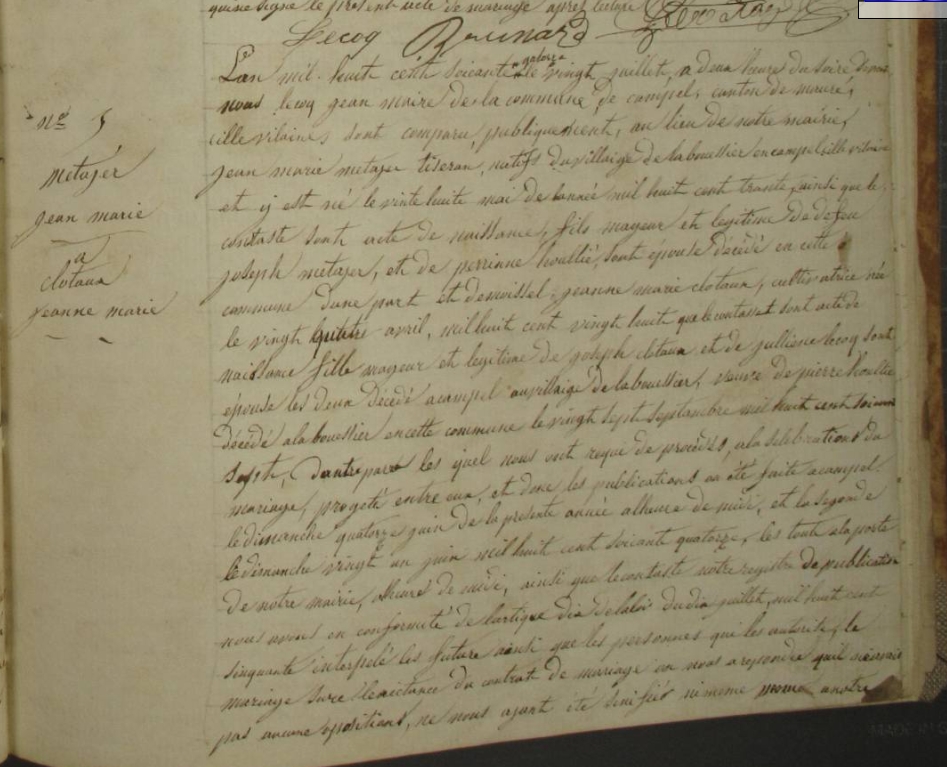 qui ne signe le présent acte de mariage apres lecture
Lecoq Rouinard
L'an mil huit cent soicante quatorze le vingt juillet, a deux heure du soire devant
nous lecoq jean maire de la commune de campel, canton de maure,
ille vilaine, dont comparu, publiquement, au lieu de notre mairie,
jean marie metayer tiseran, natifs du villaige de la boussier en campel ille vilaine
et y est né le vinte huite mai de lannée mil huit cent trante, ainsi que le
contaste sont acte de naissance, fils mayeur et legitime de defeu
joseph metayer, et de perrinne houllié, sont épouse décédé en cette
commune d'une part et demoissel, jeanne marie clotaux, cultivatrice née
le vingt quatre avril, mil huit cent vingt huit que le contaste sont acte de
naissance fille mayeur et legitime de joseph clotaux et de jullienne lecoq sont
épouse les deux décédé a campel au villaige de la boussier, veuve de pierre houllié
décédé a la boussier en cette commune le vingt sept septambre mil huit cent soixante
septe, d'autre pare les quel nous ont requi de procéder, a la selebrations du
mariage, progeté entre eux, et donc les publications on été faite a campel
le dimanche quatorze juin de la presente année a lheure de midi, et la segonde
le dimanche vingt un juin mil huit cent soicante quatorze, les tout a la porte
de notre mairie, a lheure de midi, ainsi que le contaste notre registre de publication
nous avons en conformité de lartique dix de la loi du dix juillet, mil huit cent
sinquante interpelé les future ainsi que les personnes qui les autorite, le
mariage sur l'exictance du contrat de mariage on nous a repondu quil
pas aucune opositions, ne nous ayant été sinifiés ni meme
n° 5
metayer
jean marie
a
clotaux
jeanne marie